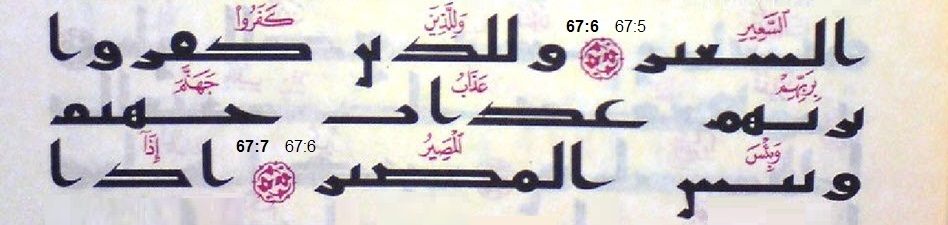 السَّعِيرِ 67:5 67:6 وَلِلَّذِينَ كَفَرُوا
السعير وللذين كفروا
بِرَبِّهِمْ عَذَابُ جَهَنَّمَ
بربهم عذاب جهنم
وَبِئْسَ الْمَصِيرُ 67:6 67:7 إِذَا
وبئس المصير اذا